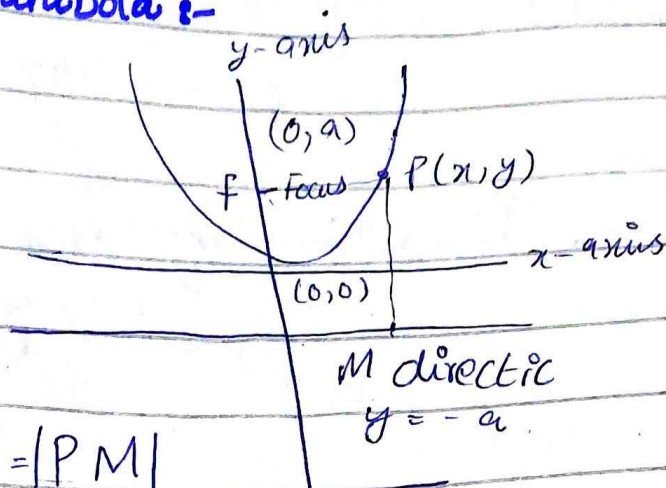 y-axis
(0,a)
F Focus P(x,y)
x-axis
(0,0)
M directic
y = -a
=|PM|